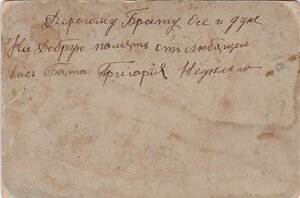 Дорогому Брату Осе и дуне
На добрую память от любящего
вась Бата Григория Недилько